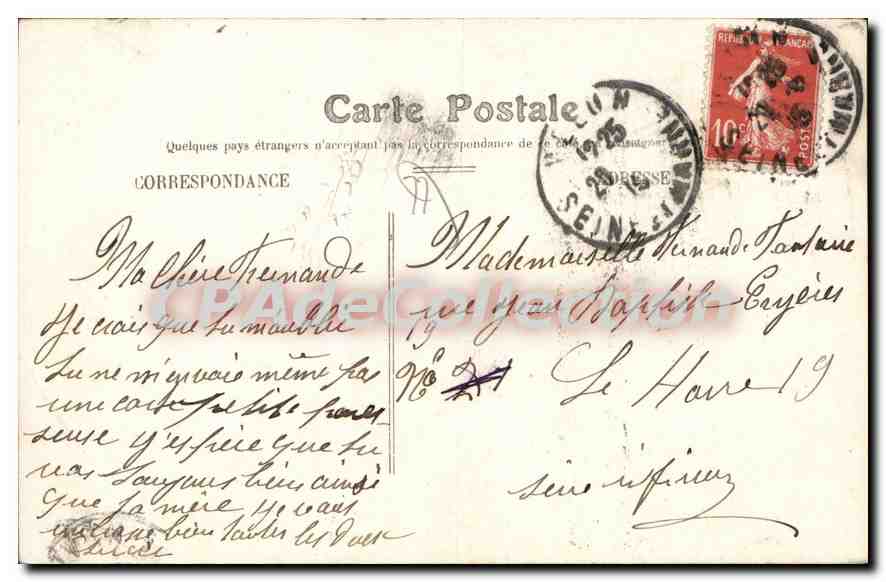 Carte Postale
Quelques pays étrangers n'acceptant pas la correspondance de ce côté
CORRESPONDANCE
ADRESSE
REPUBLIQUE FRANÇAISE
10 C
POSTES
MELUN
17-25
SEINE-ET-MARNE
Ma Chère Fernande
Je crois que tu moublie
tu ne m'envoie même pas
une carte petite pares
seuse j'espère que tu
vas toujours bien ainsi
que ta mère je vous
embrasse bien toutes les deux
Mademoiselle Fernande
rue Jean Baptiste Eyriès
19
No 21
Le Havre 19
seine inf
CPAdeCollection